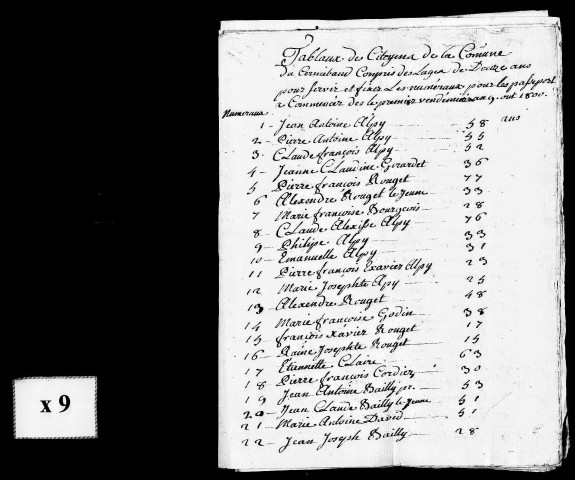 Tableaux des Citoyens de la Comune
du Cerniébaud Compris des Lages de Douze ans
pour servir et fixer Les numéraux pour les passeport
a Commencer dès le premier vendémiaire an 9. out 1800.
Numeraux. ans
1 - Jean Antoine Alpy 58
2 - Pierre Antoine Alpy 55
3 - Claude françois Alpy 52
4 - Jeanne Claudine Girardet 36
5 Pierre françois Rouget 77
6 Alexendre Rouget le Jeune 33
7 Marie françoise Bourgeois 28
8 Claude Alexisse Alpy 76
9 - Philipe Alpy 33
10 - Emanuelle Alpy 31
11 Pierre françois Exavier Alpy 23
12 Marie Josephte Apy 25
13 Alexendre Rouget 48
14 Marie françoise Godin 38
15 françois Xavier Rouget 17
16 Raine Josephte Rouget 15
17 Etiennette Claire 63
18 Pierre françois Cordier 30
19 Jean Antoine Bailly pr. 53
20 - Jean Claude Bailly le Jeune 51
21 - Marie Antoine David 51
22 - Jean Joseph Bailly 28
x 9